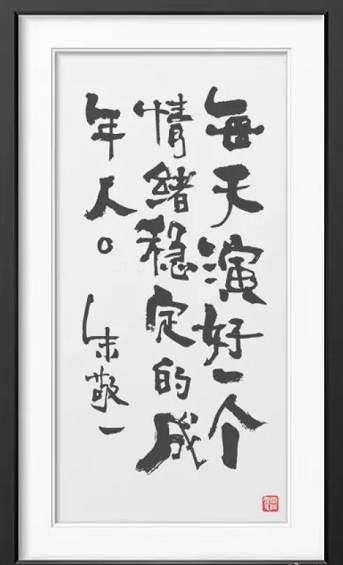 每天演好一个
情绪稳定的成
年人。朱敬一